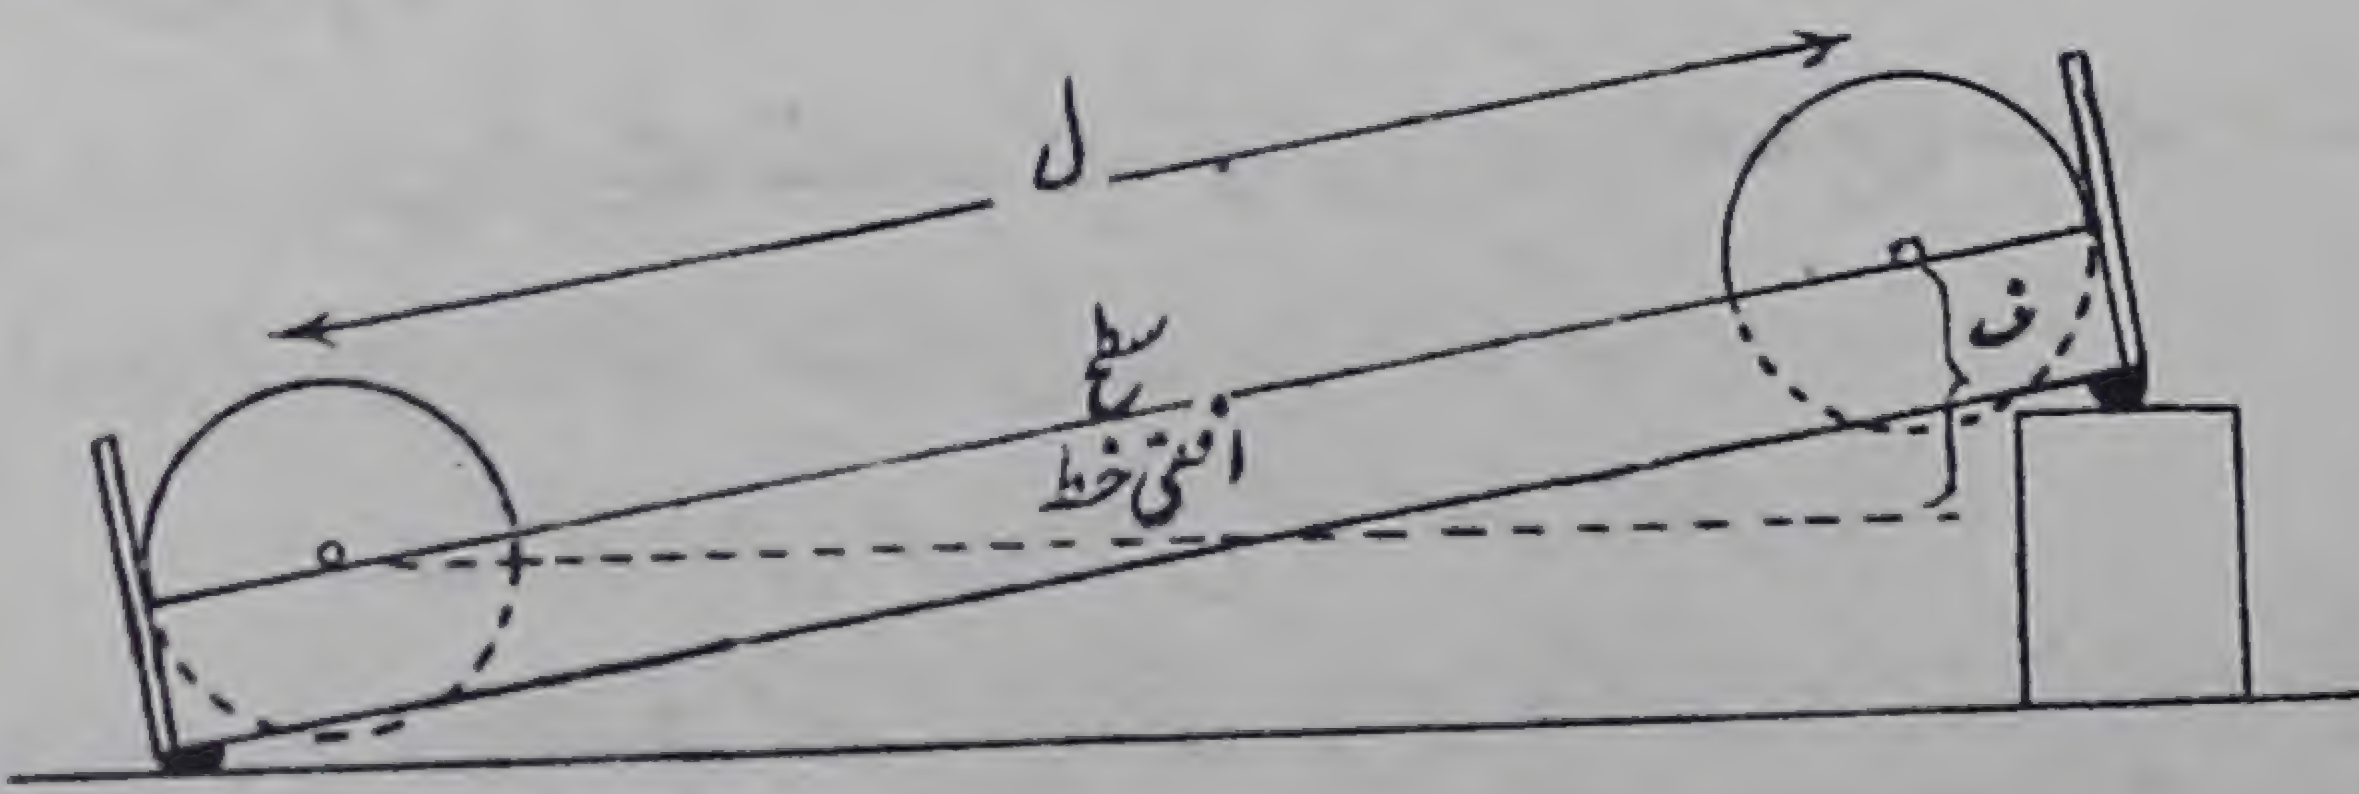 ل
ف
سطح
افقی خط